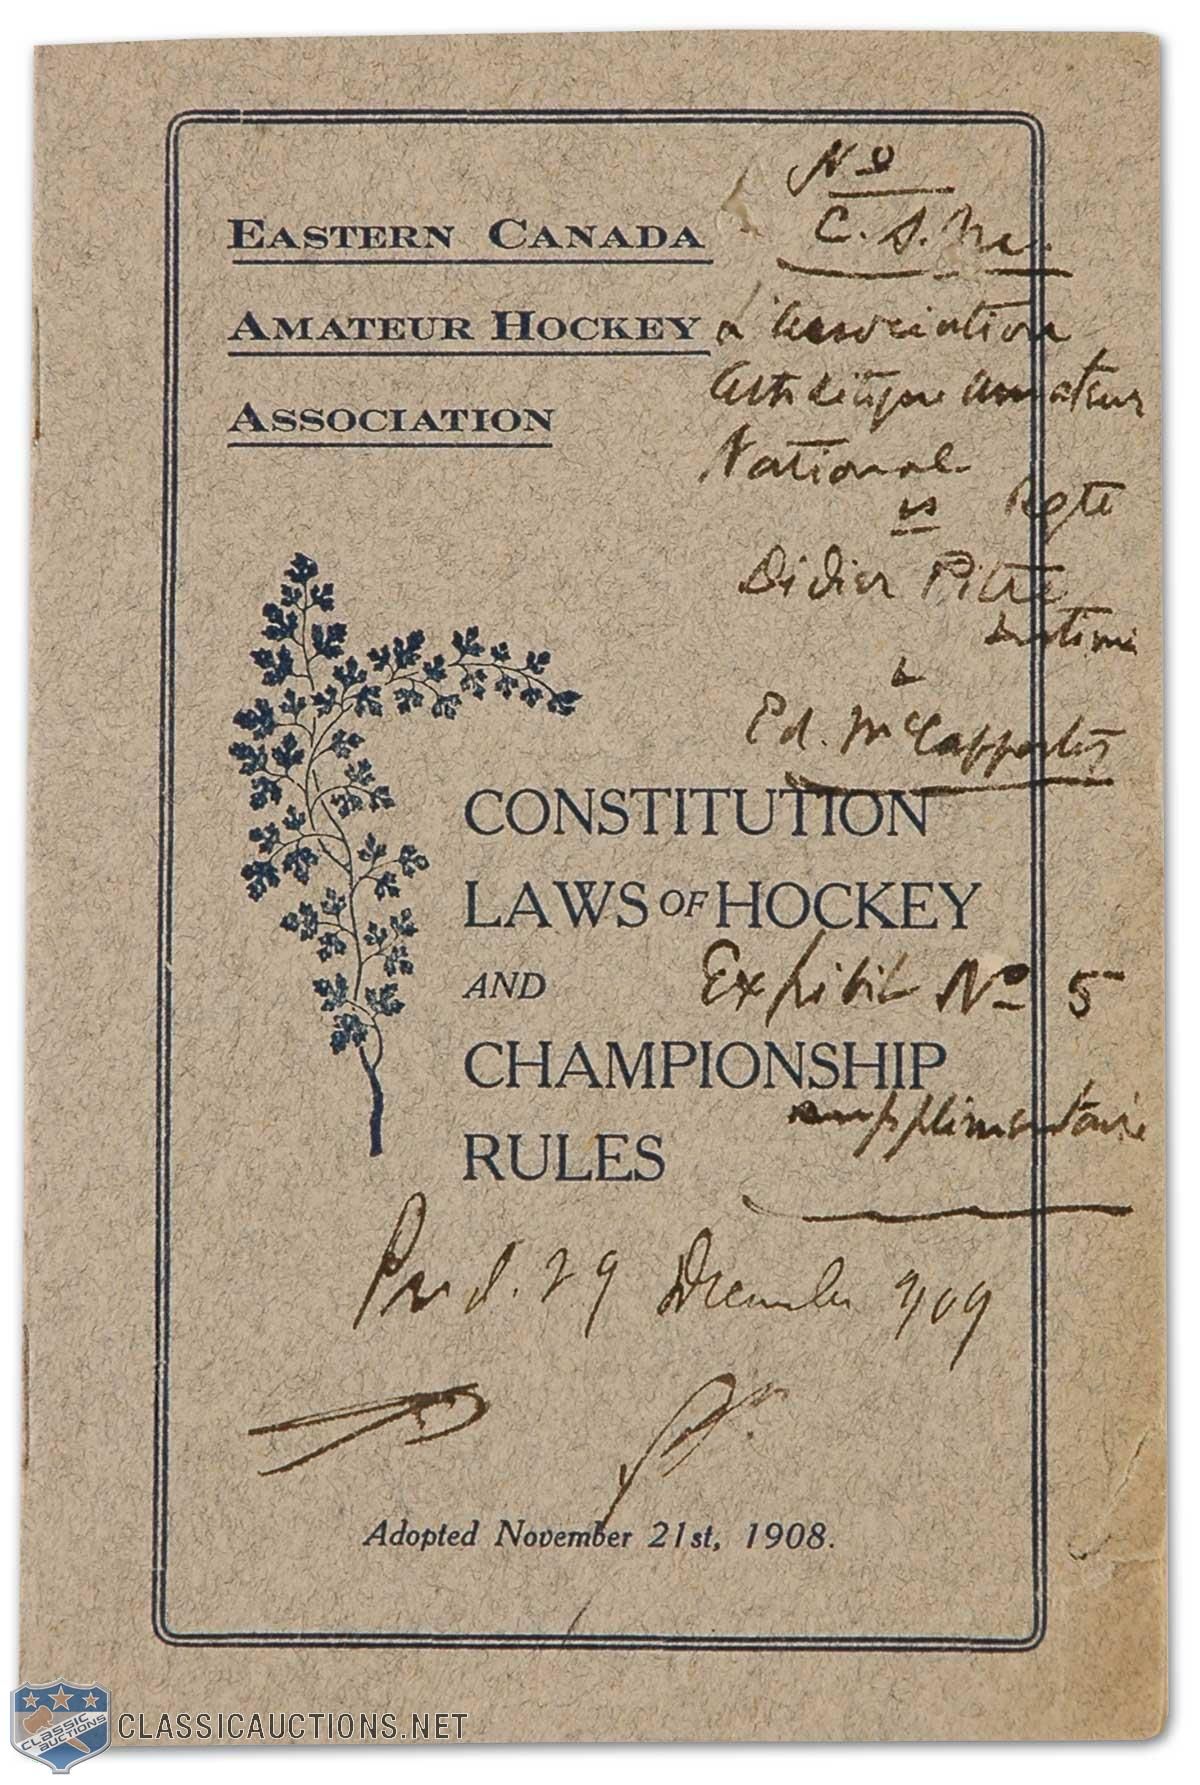 EASTERN CANADA
AMATEUR HOCKEY
ASSOCIATION
No
C. S. M.
L'Association
Athlétique Amateur
National
vs Rqte
Didier Pitre
Intimé
&
Ed. McCafferty
CONSTITUTION
LAWS OF HOCKEY
AND
CHAMPIONSHIP
RULES
Exhibit No 5
supplimentaire
Prod. 29 December 1909
Adopted November 21st, 1908.
CLASSIC AUCTIONS
CLASSICAUCTIONS.NET